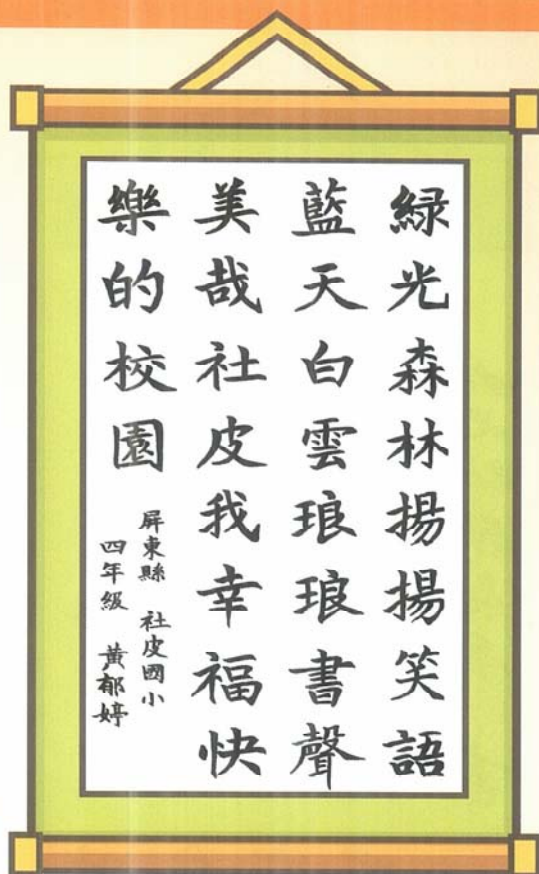 綠光森林揚揚笑語
藍天白雲琅琅書聲
美哉社皮我幸福快
樂的校園
屏東縣 社皮國小
四年級 黃郁婷